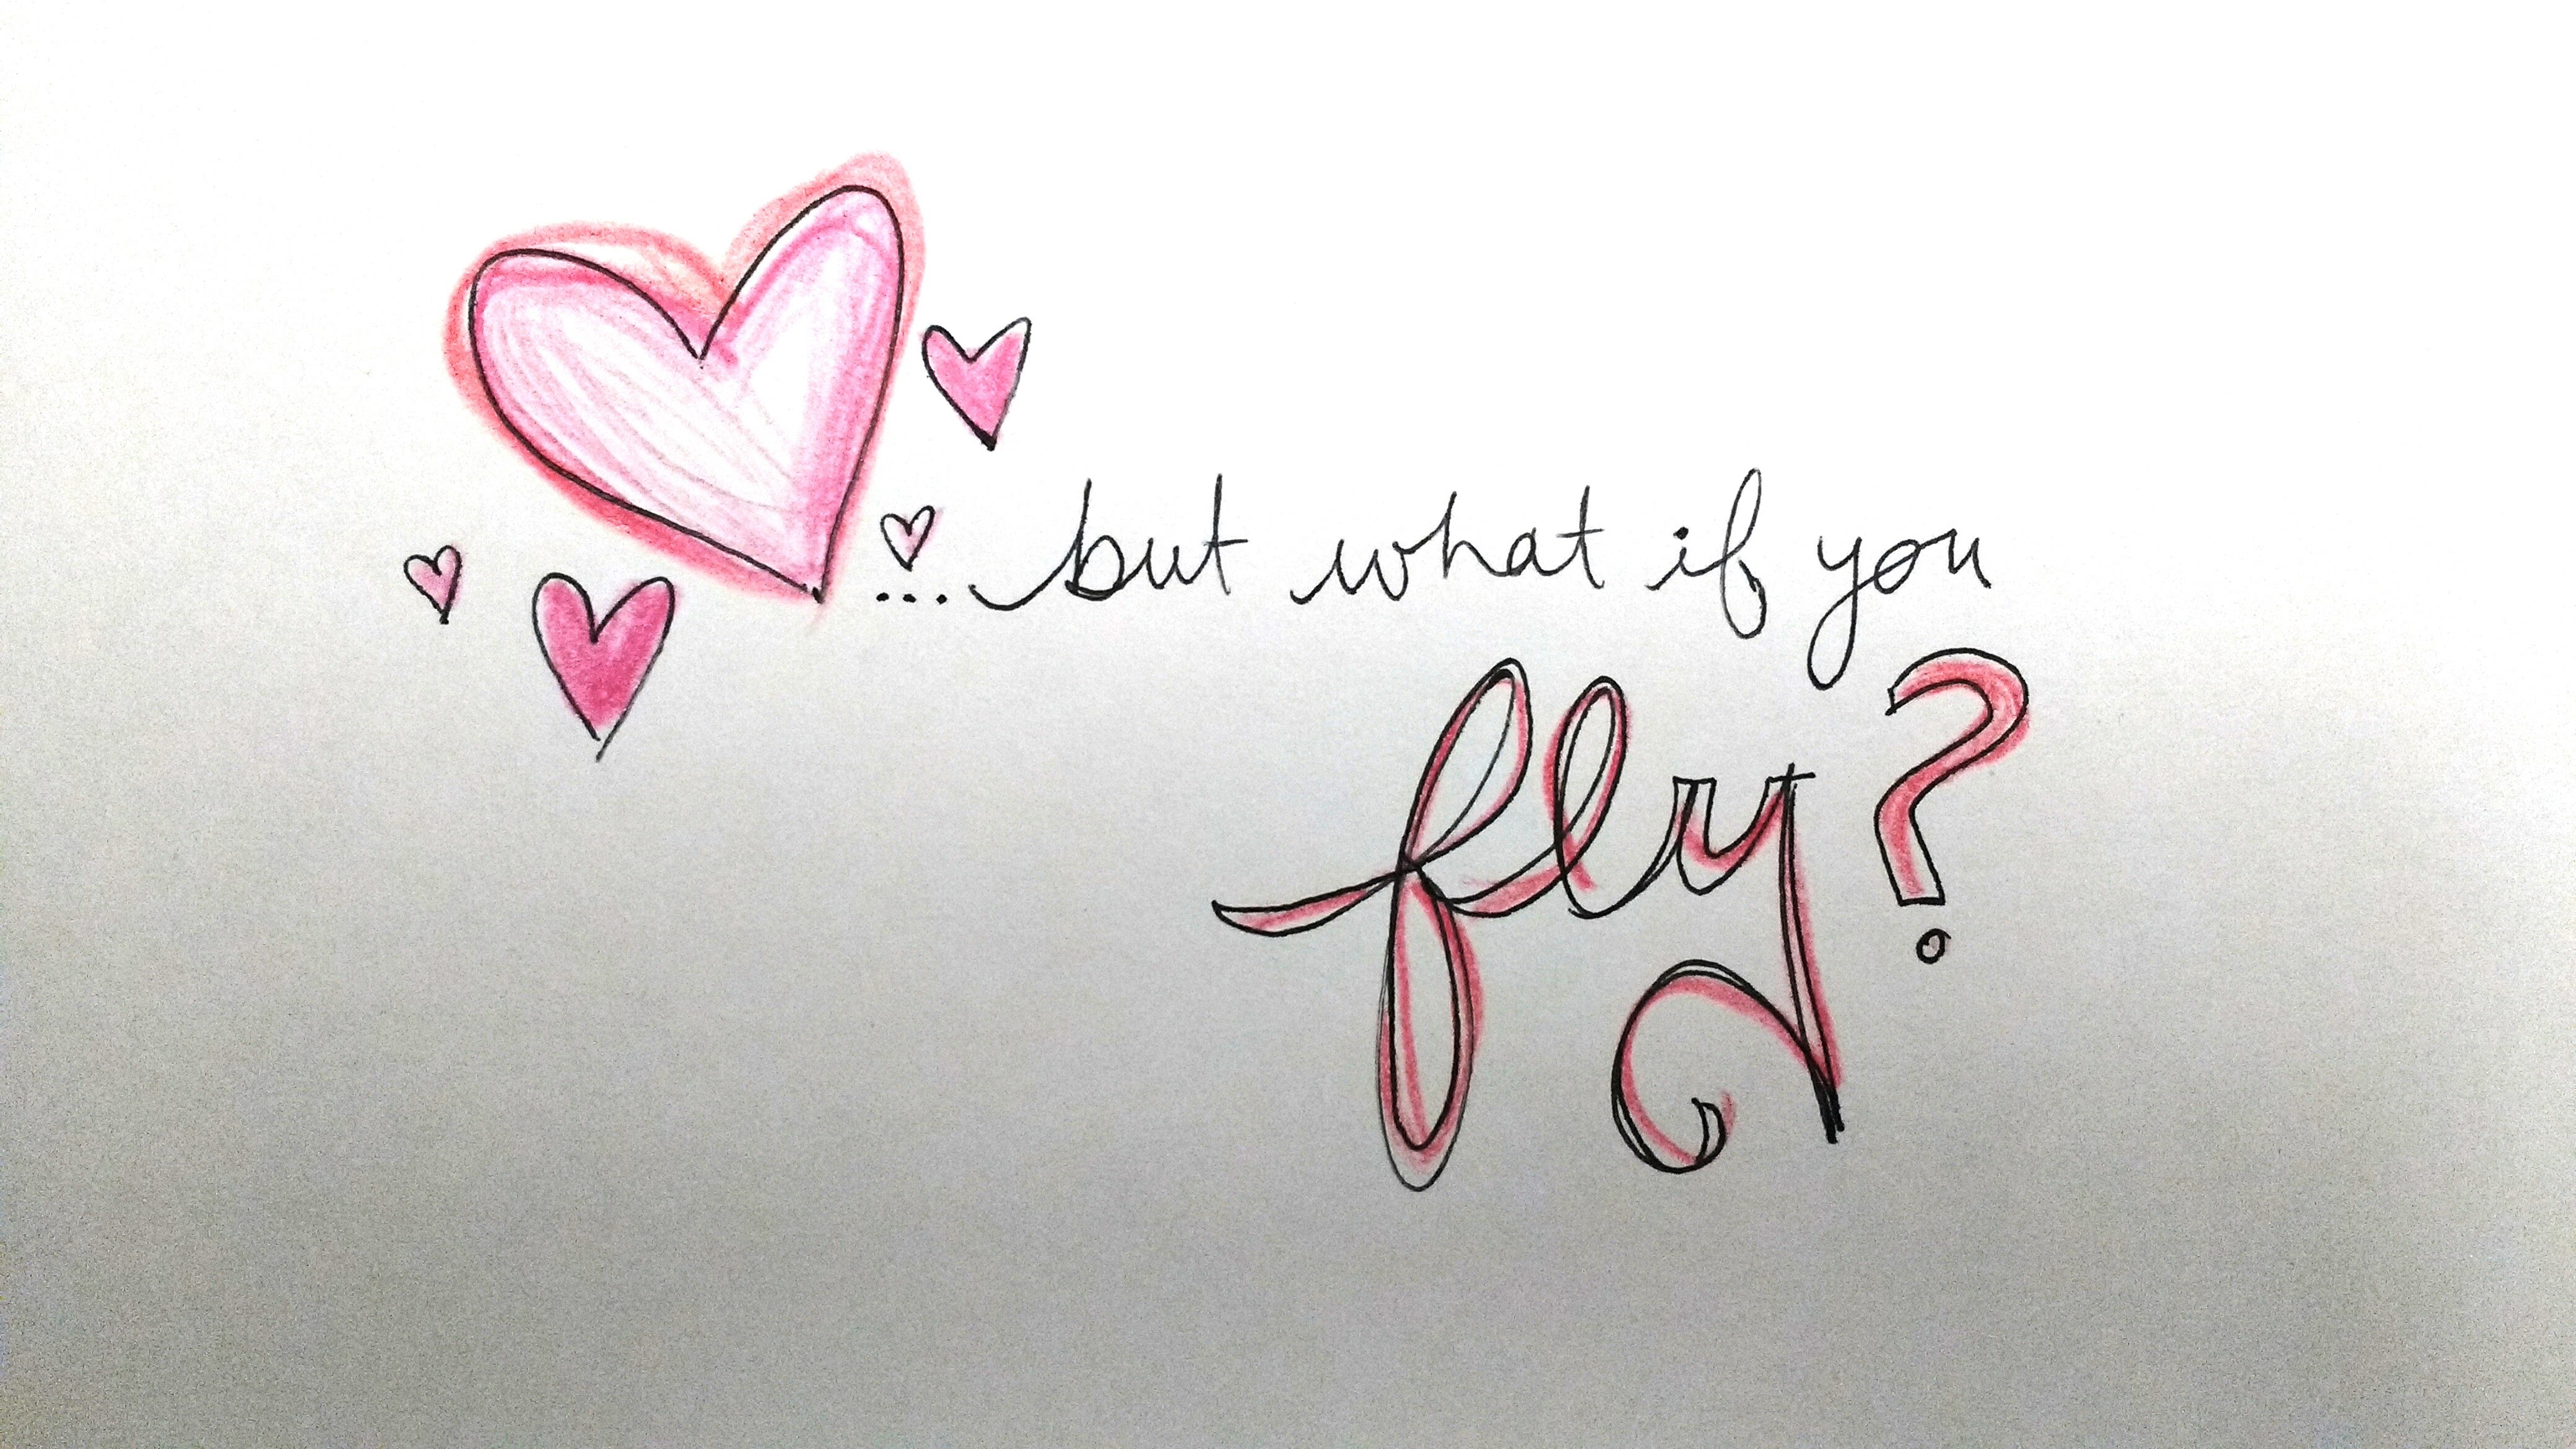 ...but what if you
fly?